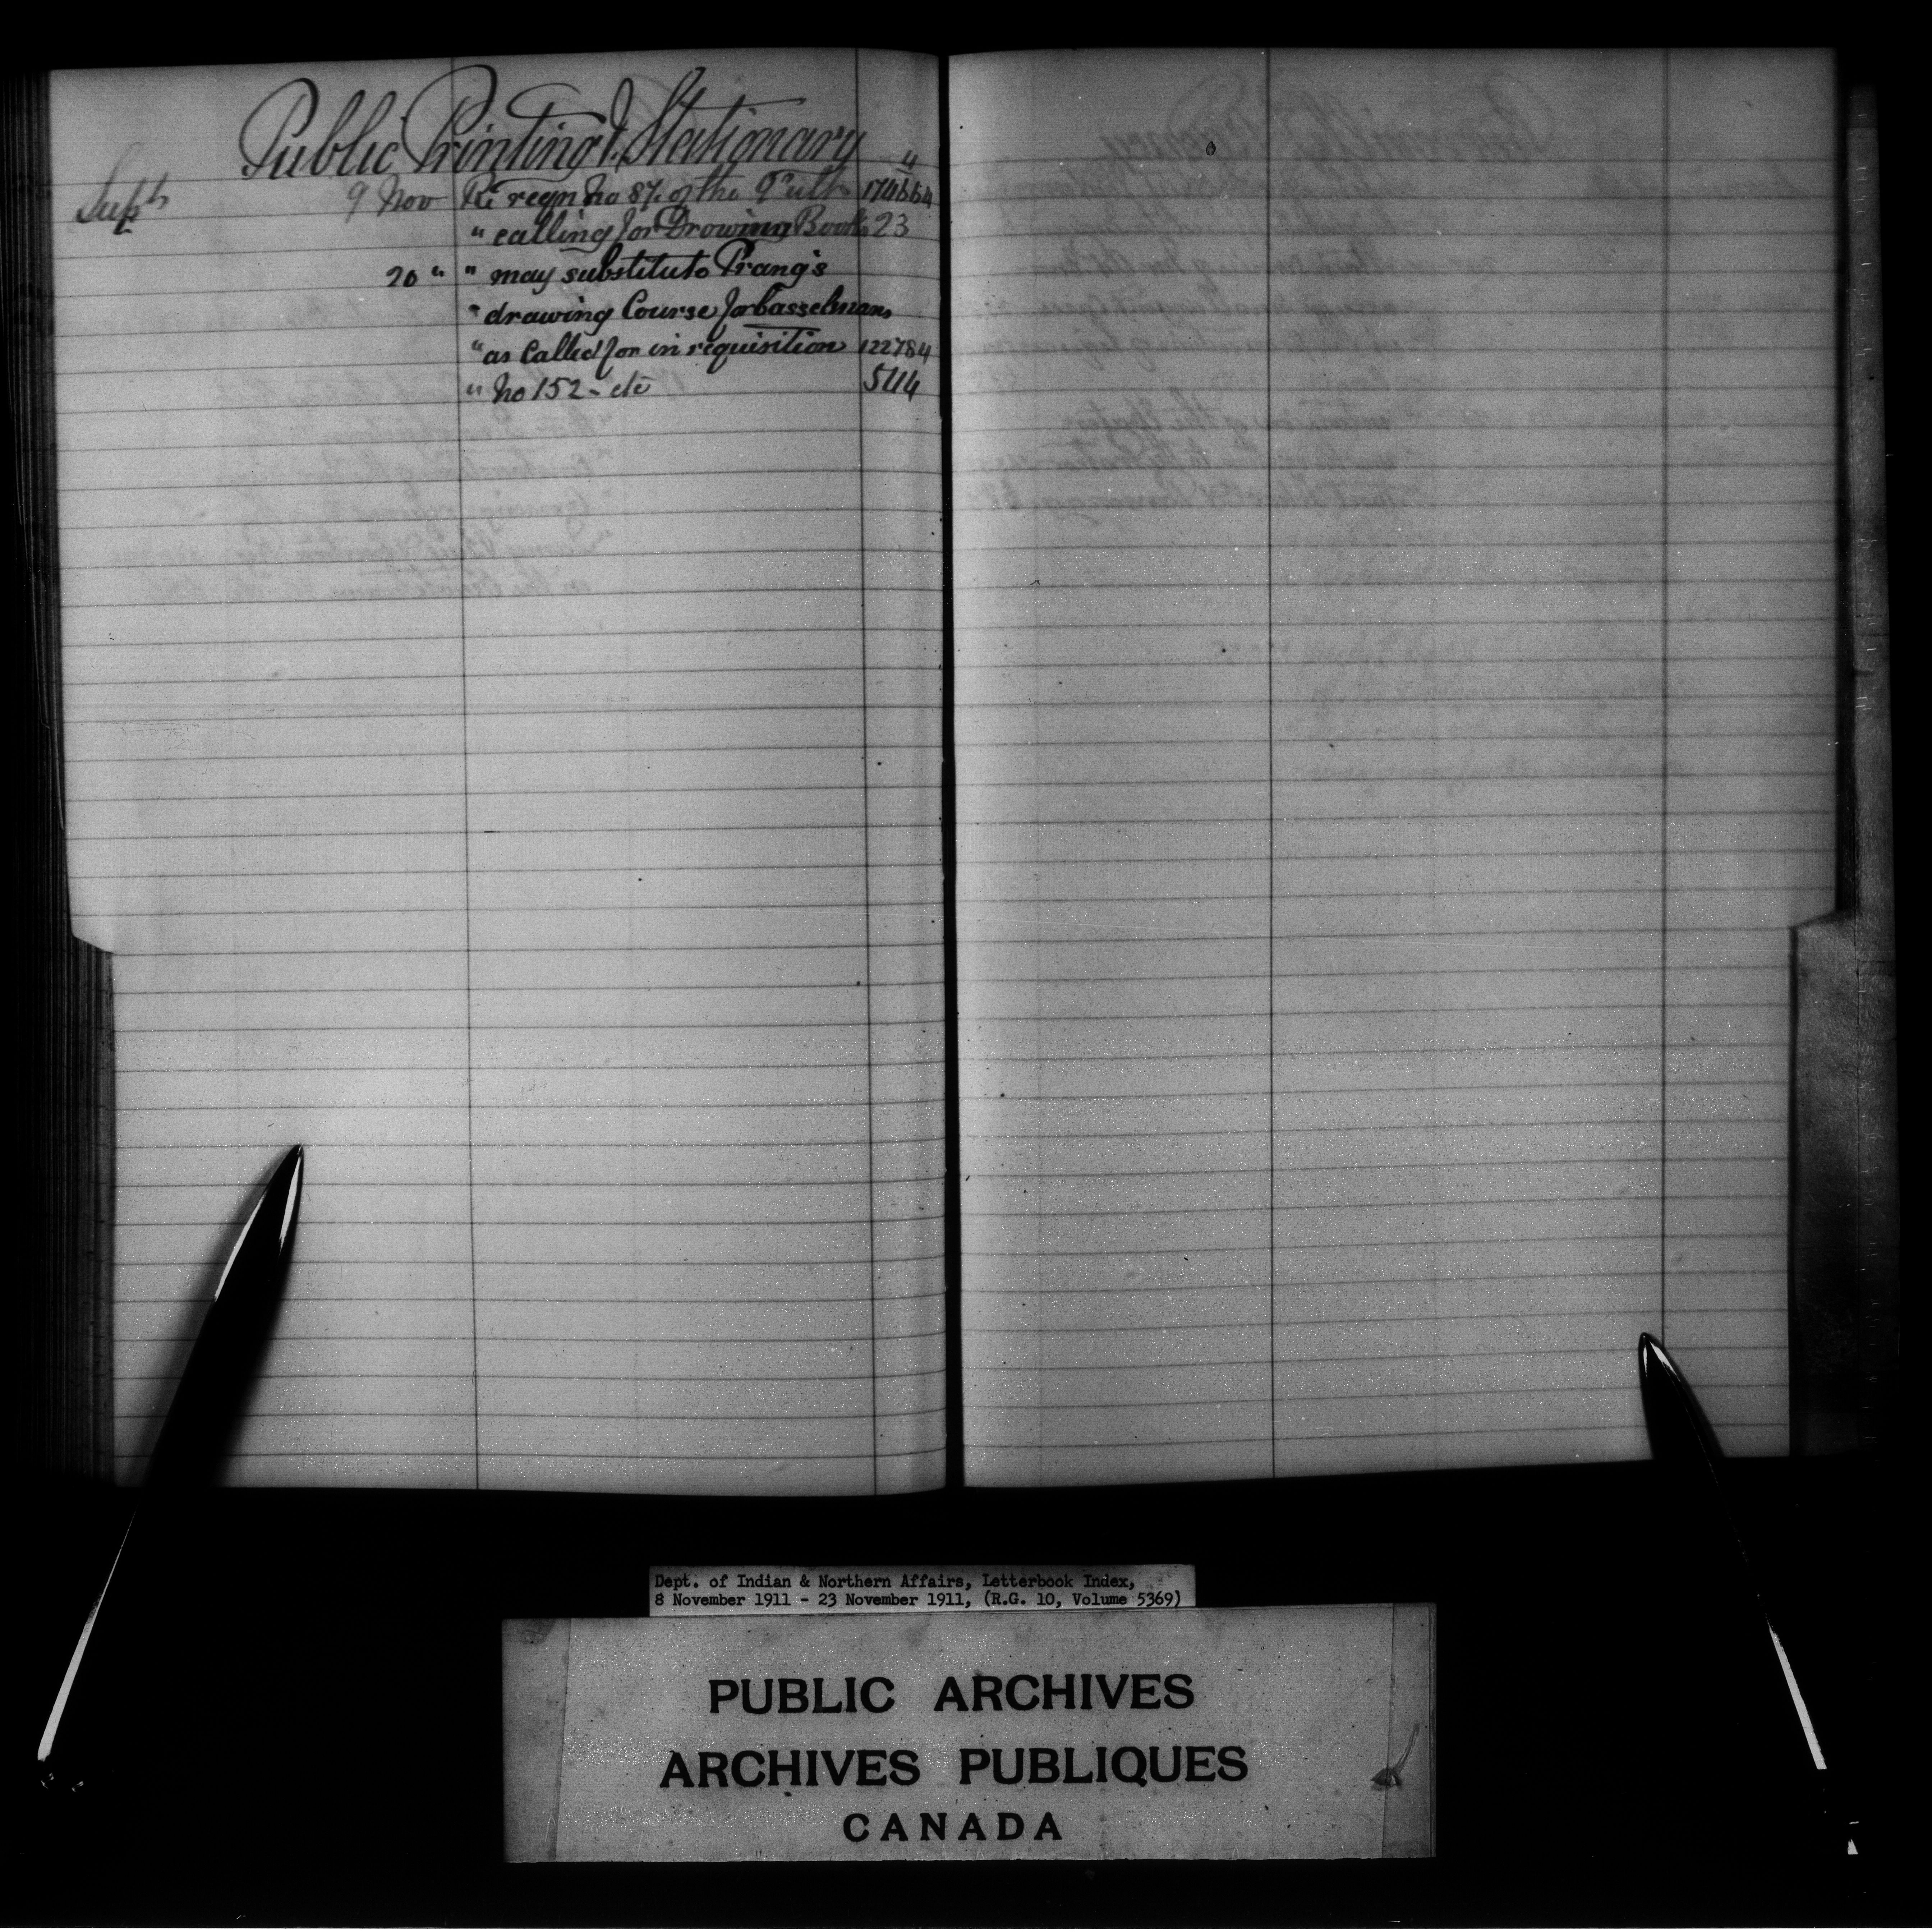 Public Printing & Stationary
4
Supt 9 Nov Re reqn No 87. of the 9 ult 174664
" calling for Drowing Books 23
20 " " may substitute Prang's
" drawing Course for Casselmans
" as called for in requisition 122784
" No 152 - etc 514
Dept. of Indian & Northern Affairs, Letterbook Index,
8 November 1911 - 23 November 1911, (R.G. 10, Volume 5369)
PUBLIC ARCHIVES
ARCHIVES PUBLIQUES
CANADA